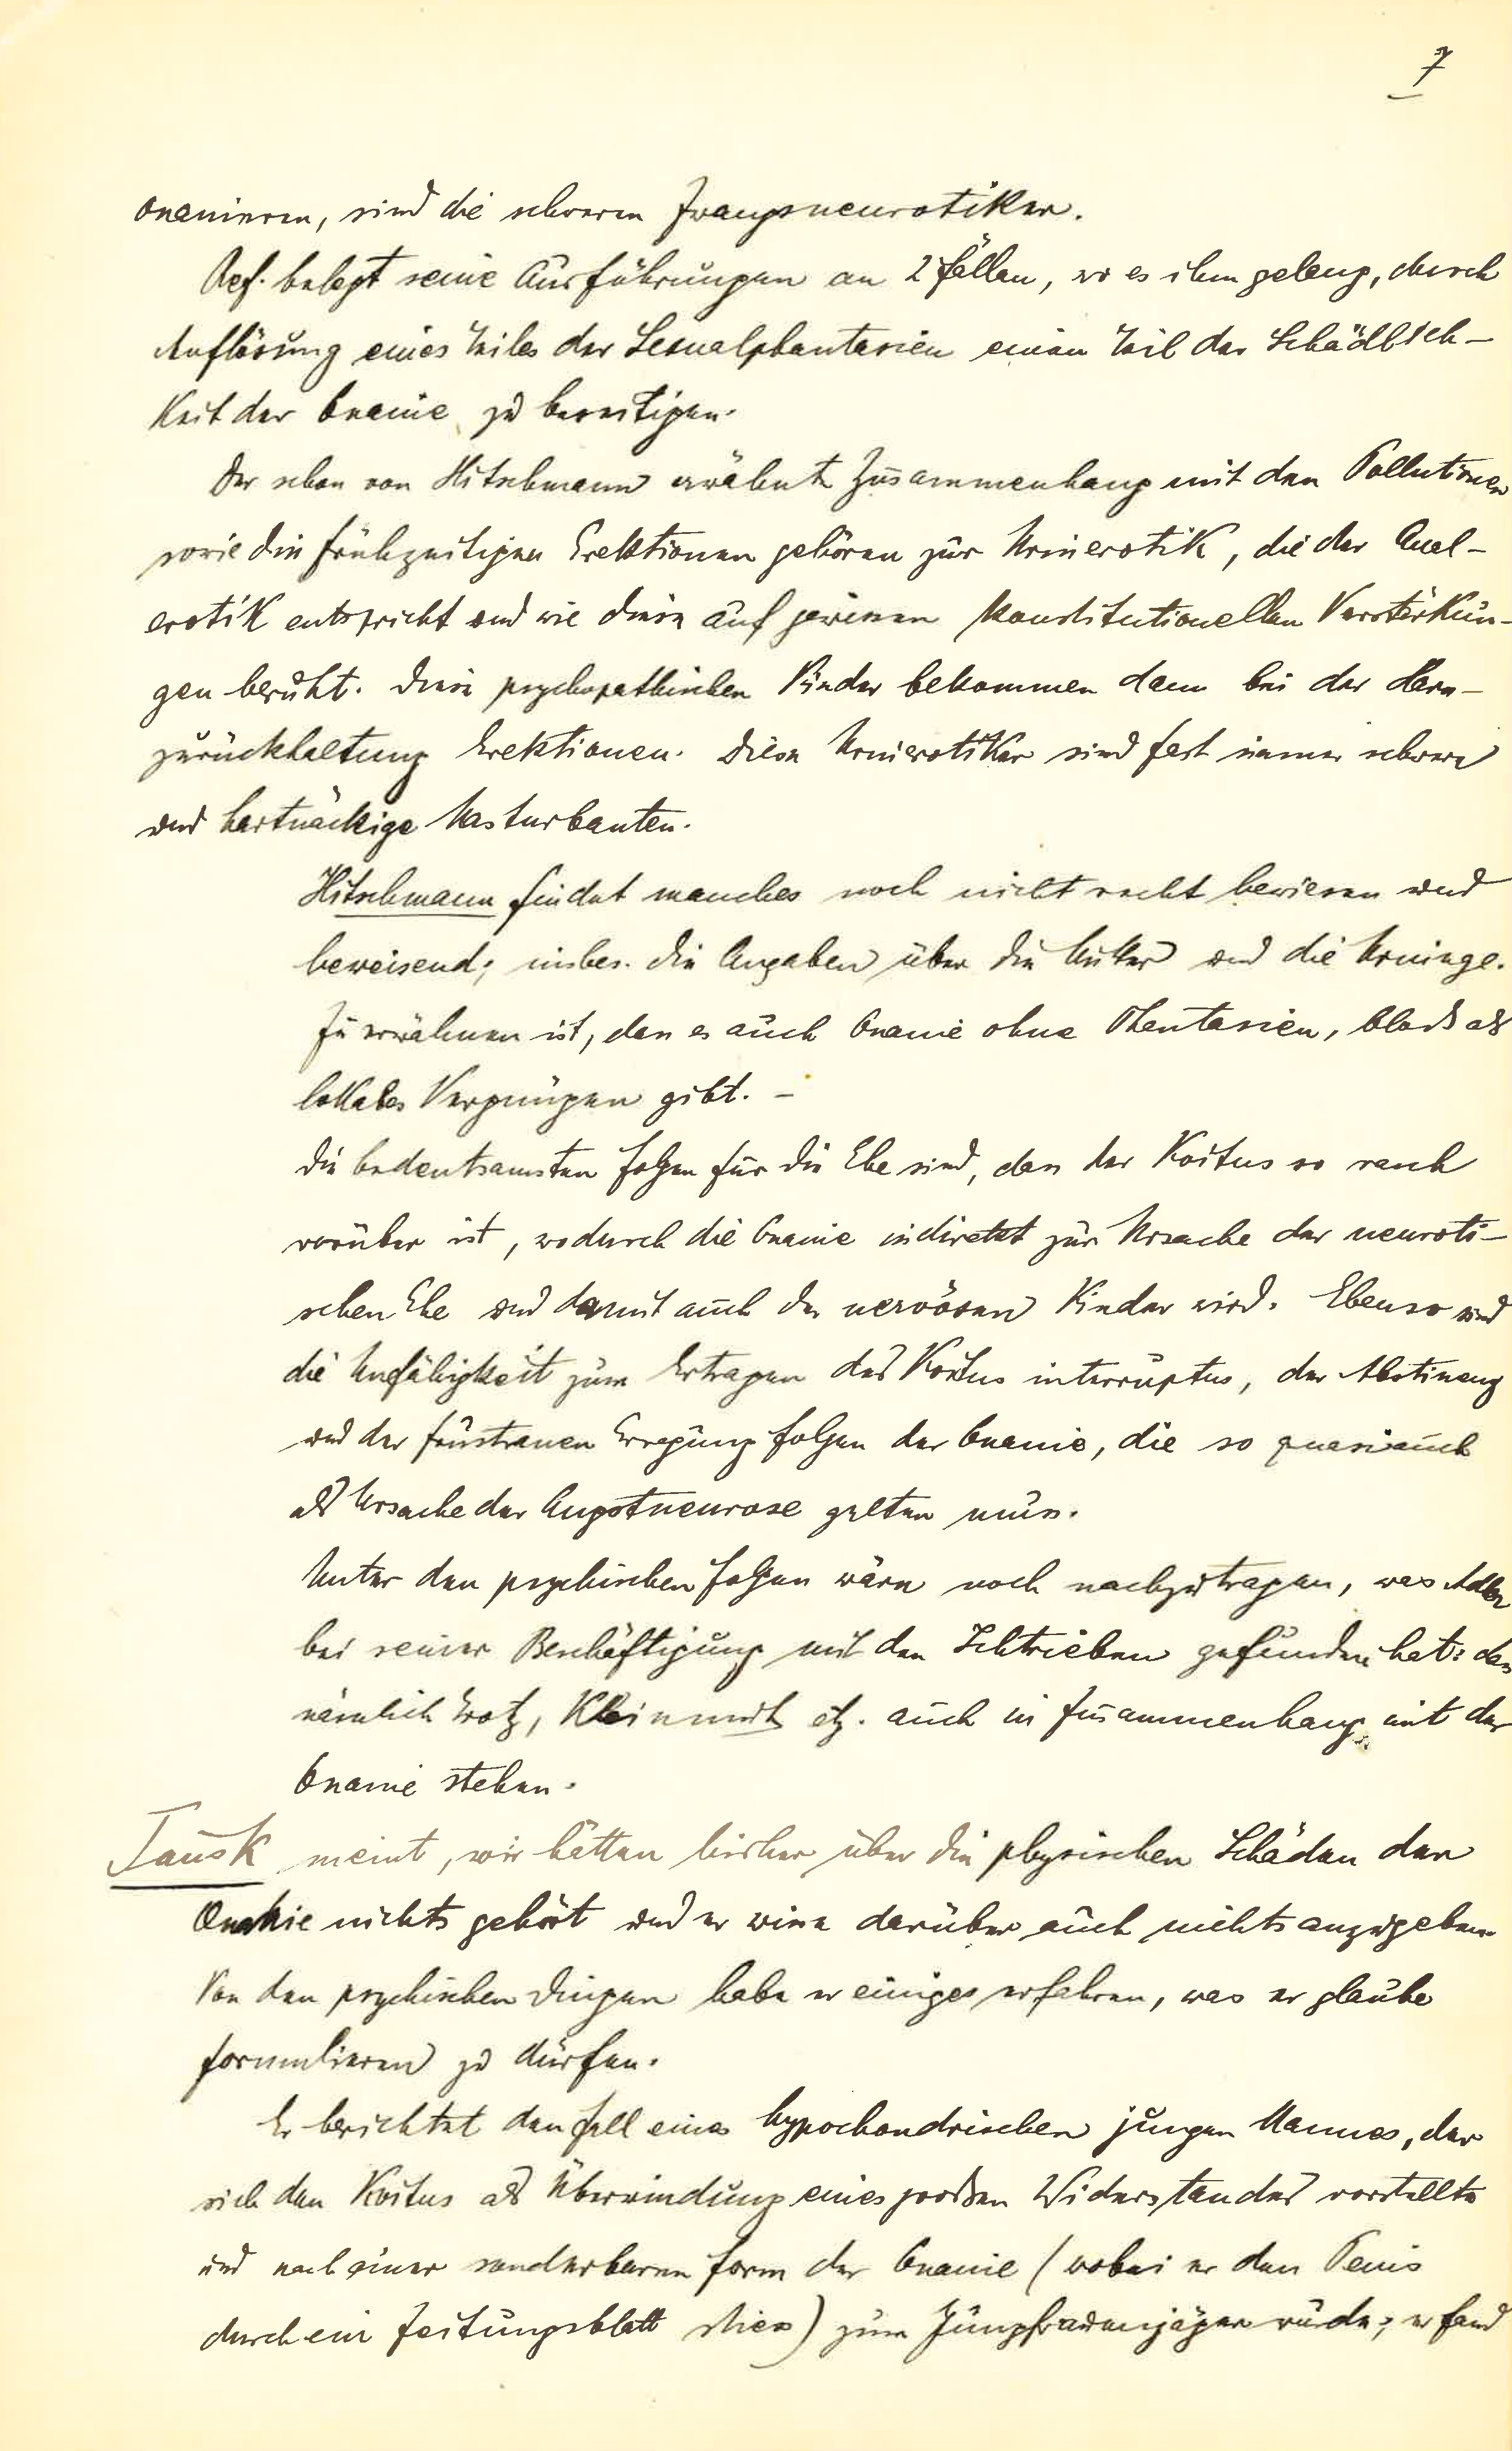 7
onanieren, sind die schweren Zwangsneurotiker.
Ref. belegt seine Ausführungen an 2 Fällen, wo es ihm gelang, durch
Auflösung eines Teiles der Sexualphantasien einen Teil der Schädlich-
keit der Onanie zu beseitigen.
Der schon von Hitschmann erwähnte Zusammenhang mit den Pollutionen
sowie die frühzeitigen Erektionen gehören zur Urinerotik, die der Anal-
erotik entspricht und wie diese auf gewissen konstitutionellen Verstärkun-
gen beruht. Diese psychopathischen Kinder bekommen dann bei der Harn-
zurückhaltung Erektionen. Diese Urinerotiker sind fast immer schwere
und hartnäckige Masturbanten.
Hitschmann findet manches noch nicht recht bewiesen und
beweisend; insbes. die Angaben über die und die Urninge.
Zu erwähnen ist, dass es auch Onanie ohne Phantasien, bloß als
lokales Vergnügen gibt. –
Die bedeutsamsten Folgen für die Ehe sind, dass der Koitus so rasch
vorüber ist, wodurch die Onanie indirekt zur Ursache der neuroti-
schen Ehe und damit auch der nervösen Kinder wird. Ebenso sind
die Unfähigkeit zum Ertragen des Koitus interruptus, der Abstinenz
und der frustranen Erregung Folgen der Onanie, die so quasi auch
als Ursache der Angstneurose gelten muss.
Unter den psychischen Folgen wäre noch nachzutragen, was Adler
bei seiner Beschäftigung mit den Ichtrieben gefunden hat: dass
nämlich Trotz, Kleinmut etz. auch in Zusammenhang mit der
Onanie stehen.
Tausk meint, wir hätten bisher über die physischen Schäden der
Onanie nichts gehört und er wisse darüber auch nichts anzugeben.
Von den psychischen Dingen habe er einiges erfahren, was er glaube
formulieren zu dürfen.
Er berichtet den Fall eines hypochondrischen jungen Mannes, der
sich den Koitus als Überwindung eines großen Widerstandes vorstellte
und nach einer sonderbaren Form der Onanie (wobei er den Penis
durch ein Zeitungsblatt stiess) zum Jungfrauenjäger wurde; er fand